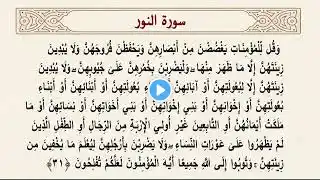 سورة النور
وَقُل لِّلْمُؤْمِنَاتِ يَغْضُضْنَ مِنْ أَبْصَارِهِنَّ وَيَحْفَظْنَ فُرُوجَهُنَّ وَلَا يُبْدِينَ
زِينَتَهُنَّ إِلَّا مَا ظَهَرَ مِنْهَا ۖ وَلْيَضْرِبْنَ بِخُمُرِهِنَّ عَلَىٰ جُيُوبِهِنَّ ۖ وَلَا يُبْدِينَ
زِينَتَهُنَّ إِلَّا لِبُعُولَتِهِنَّ أَوْ آبَائِهِنَّ أَوْ آبَاءِ بُعُولَتِهِنَّ أَوْ أَبْنَائِهِنَّ أَوْ أَبْنَاءِ
بُعُولَتِهِنَّ أَوْ إِخْوَانِهِنَّ أَوْ بَنِي إِخْوَانِهِنَّ أَوْ بَنِي أَخَوَاتِهِنَّ أَوْ نِسَائِهِنَّ أَوْ مَا
مَلَكَتْ أَيْمَانُهُنَّ أَوِ التَّابِعِينَ غَيْرِ أُولِي الْإِرْبَةِ مِنَ الرِّجَالِ أَوِ الطِّفْلِ الَّذِينَ
لَمْ يَظْهَرُوا عَلَىٰ عَوْرَاتِ النِّسَاءِ ۖ وَلَا يَضْرِبْنَ بِأَرْجُلِهِنَّ لِيُعْلَمَ مَا يُخْفِينَ مِن
زِينَتِهِنَّ ۚ وَتُوبُوا إِلَى اللَّهِ جَمِيعًا أَيُّهَ الْمُؤْمِنُونَ لَعَلَّكُمْ تُفْلِحُونَ ﴿٣١﴾